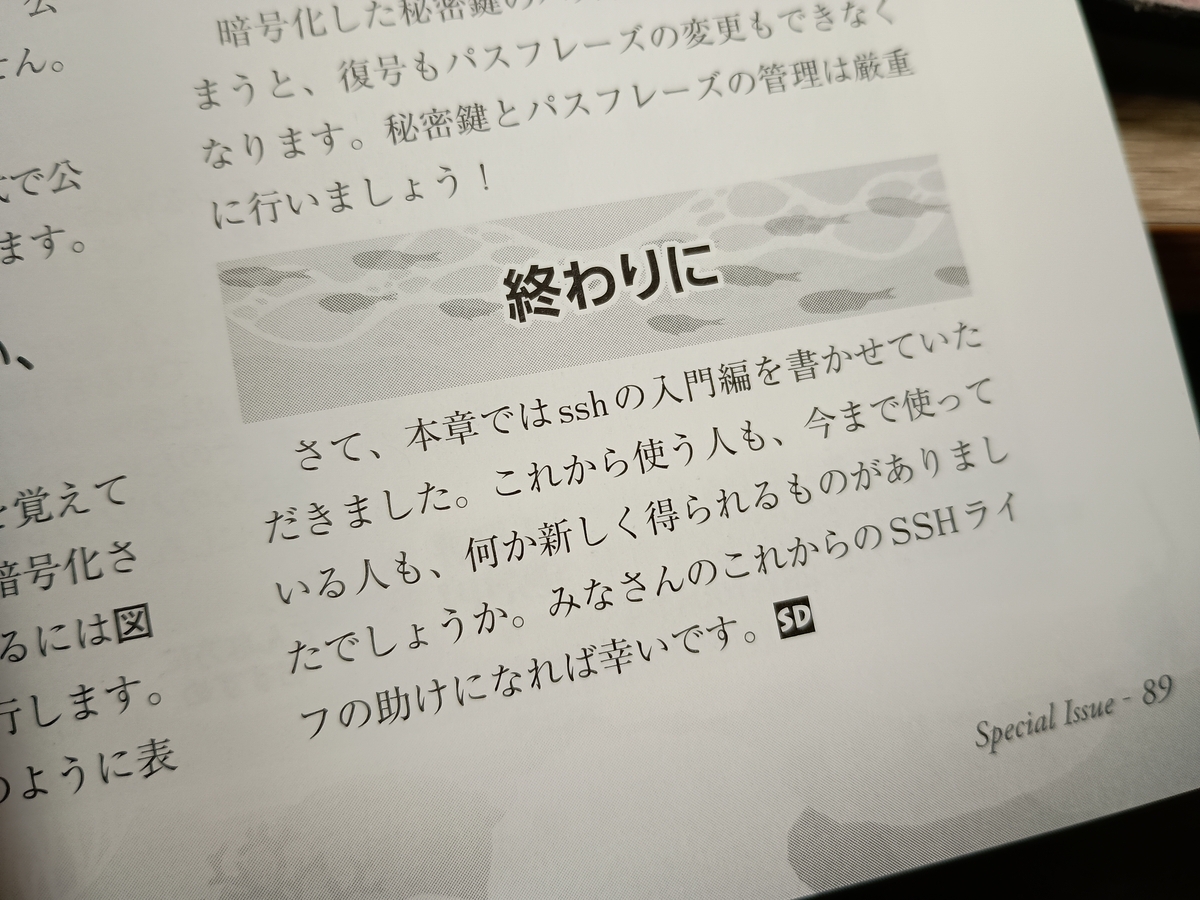 公
せん。
式で公
ます。
い、
を覚えて
暗号化さ
るには図
行します。
のように表
暗号化した秘密鍵の
まうと、復号もパスフレーズの変更もできなく
なります。秘密鍵とパスフレーズの管理は厳重
に行いましょう！
終わりに
さて、本章ではsshの入門編を書かせていた
だきました。これから使う人も、今まで使って
いる人も、何か新しく得られるものがありまし
たでしょうか。みなさんのこれからのSSHライ
フの助けになれば幸いです。SD
Special Issue - 89